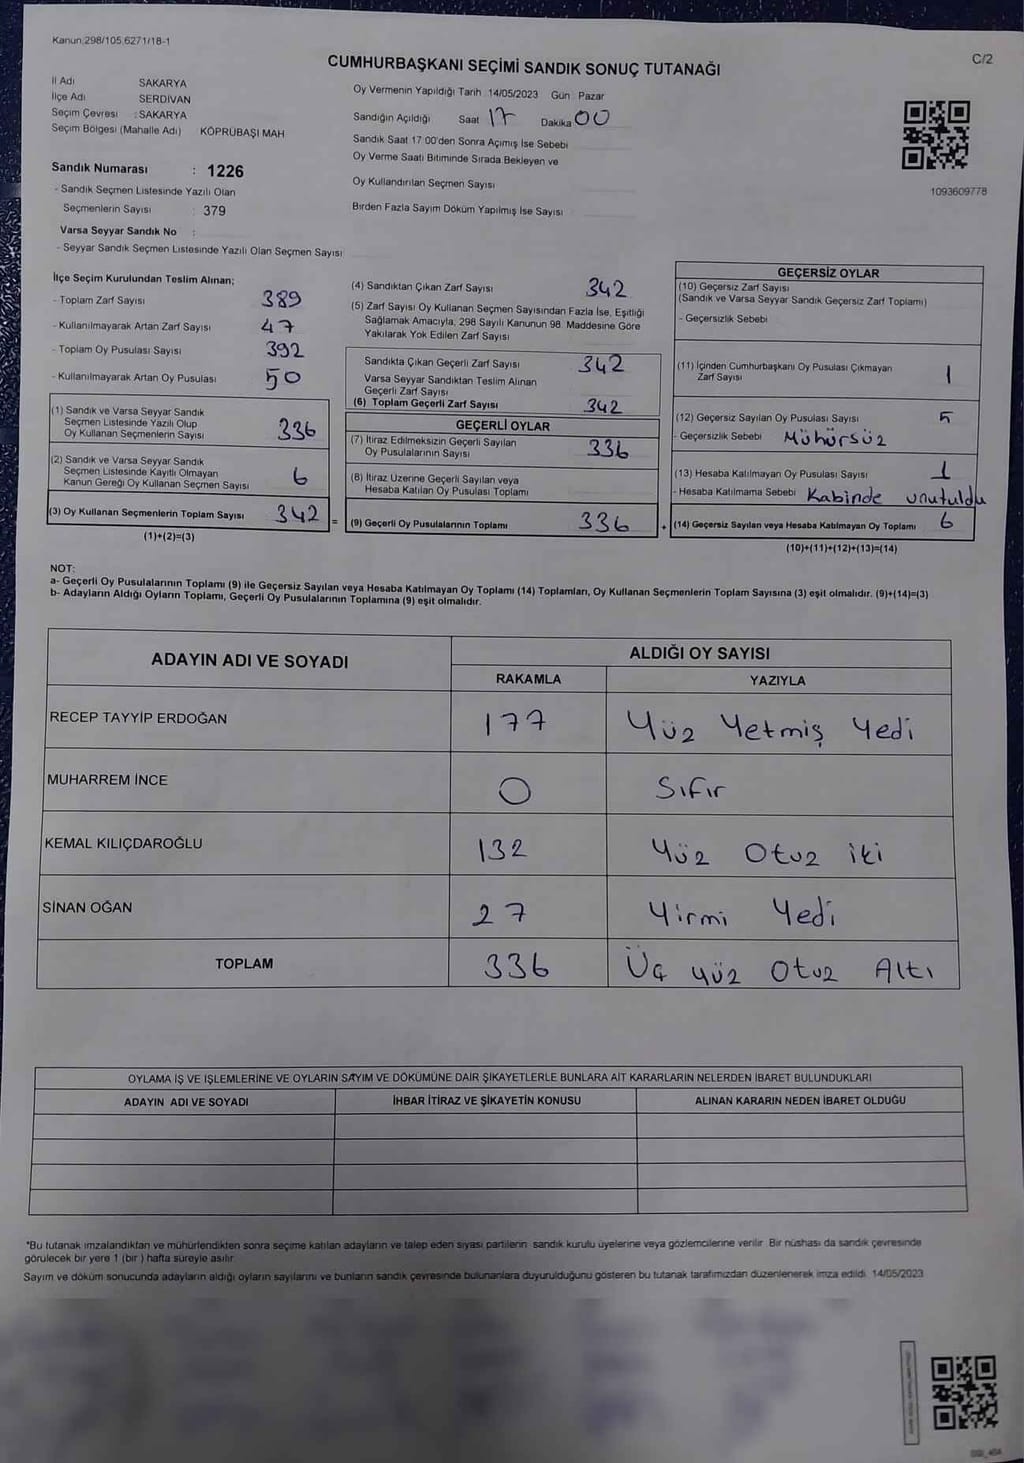 Kanun:298/105,6271/18-1
C/2
CUMHURBAŞKANI SEÇİMİ SANDIK SONUÇ TUTANAĞI
İl Adı SAKARYA
İlçe Adı SERDİVAN
Seçim Çevresi : SAKARYA
Seçim Bölgesi (Mahalle Adı) KÖPRÜBAŞI MAH
Sandık Numarası : 1226
- Sandık Seçmen Listesinde Yazılı Olan
Seçmenlerin Sayısı : 379
Varsa Seyyar Sandık No :
- Seyyar Sandık Seçmen Listesinde Yazılı Olan Seçmen Sayısı
Oy Vermenin Yapıldığı Tarih 14/05/2023 Gün Pazar
Sandığın Açıldığı Saat 17 Dakika 00
Sandık Saat 17:00'den Sonra Açımış İse Sebebi
Oy Verme Saati Bitiminde Sırada Bekleyen ve
Oy Kullandırılan Seçmen Sayısı
Birden Fazla Sayım Döküm Yapılmış İse Sayısı
1093609778
İlçe Seçim Kurulundan Teslim Alınan;
- Toplam Zarf Sayısı 389
- Kullanılmayarak Artan Zarf Sayısı 47
- Toplam Oy Pusulası Sayısı 392
- Kullanılmayarak Artan Oy Pusulası 50
(1) Sandık ve Varsa Seyyar Sandık
Seçmen Listesinde Yazılı Olup
Oy Kullanan Seçmenlerin Sayısı 336
(2) Sandık ve Varsa Seyyar Sandık
Seçmen Listesinde Kayıtlı Olmayan
Kanun Gereği Oy Kullanan Seçmen Sayısı 6
(3) Oy Kullanan Seçmenlerin Toplam Sayısı 342 =
(1)+(2)=(3)
(4) Sandıktan Çıkan Zarf Sayısı 342
(5) Zarf Sayısı Oy Kullanan Seçmen Sayısından Fazla İse, Eşitliği
Sağlamak Amacıyla, 298 Sayılı Kanunun 98. Maddesine Göre
Yakılarak Yok Edilen Zarf Sayısı
Sandıkta Çıkan Geçerli Zarf Sayısı 342
Varsa Seyyar Sandıktan Teslim Alınan
Geçerli Zarf Sayısı
(6) Toplam Geçerli Zarf Sayısı 342
GEÇERLİ OYLAR
(7) İtiraz Edilmeksizin Geçerli Sayılan
Oy Pusulalarının Sayısı 336
(8) İtiraz Üzerine Geçerli Sayılan veya
Hesaba Katılan Oy Pusulası Toplamı
(9) Geçerli Oy Pusulalarının Toplamı 336 +
GEÇERSİZ OYLAR
(10) Geçersiz Zarf Sayısı
(Sandık ve Varsa Seyyar Sandık Geçersiz Zarf Toplamı)
- Geçersizlik Sebebi
(11) İçinden Cumhurbaşkanı Oy Pusulası Çıkmayan
Zarf Sayısı 1
(12) Geçersiz Sayılan Oy Pusulası Sayısı 5
- Geçersizlik Sebebi Mühürsüz
(13) Hesaba Katılmayan Oy Pusulası Sayısı 1
- Hesaba Katılmama Sebebi Kabinde unutuldu
(14) Geçersiz Sayılan veya Hesaba Katılmayan Oy Toplamı 6
(10)+(11)+(12)+(13)=(14)
NOT:
a- Geçerli Oy Pusulalarının Toplamı (9) ile Geçersiz Sayılan veya Hesaba Katılmayan Oy Toplamı (14) Toplamları, Oy Kullanan Seçmenlerin Toplam Sayısına (3) eşit olmalıdır. (9)+(14)=(3)
b- Adayların Aldığı Oyların Toplamı, Geçerli Oy Pusulalarının Toplamına (9) eşit olmalıdır.
ADAYIN ADI VE SOYADI
ALDIĞI OY SAYISI
RAKAMLA YAZIYLA
RECEP TAYYİP ERDOĞAN 177 Yüz Yetmiş Yedi
MUHARREM İNCE 0 Sıfır
KEMAL KILIÇDAROĞLU 132 Yüz Otuz iki
SİNAN OĞAN 27 Yirmi Yedi
TOPLAM 336 Üç yüz Otuz Altı
OYLAMA İŞ VE İŞLEMLERİNE VE OYLARIN SAYIM VE DÖKÜMÜNE DAİR ŞİKAYETLERLE BUNLARA AİT KARARLARIN NELERDEN İBARET BULUNDUKLARI
ADAYIN ADI VE SOYADI İHBAR İTİRAZ VE ŞİKAYETİN KONUSU ALINAN KARARIN NEDEN İBARET OLDUĞU
*Bu tutanak imzalandıktan ve mühürlendikten sonra seçime katılan adayların ve talep eden siyasi partilerin sandık kurulu üyelerine veya gözlemcilerine verilir. Bir nüshası da sandık çevresinde
görülecek bir yere 1 (bir) hafta süreyle asılır.
Sayım ve döküm sonucunda adayların aldığı oyların sayılarını ve bunların sandık çevresinde bulunanlara duyurulduğunu gösteren bu tutanak tarafımızdan düzenlenerek imza edildi. 14/05/2023